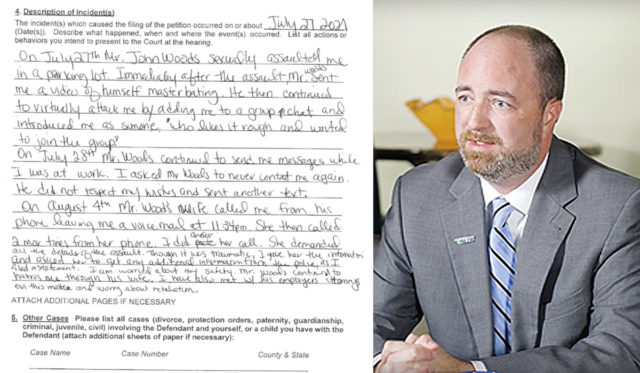 4. Description of Incident(s)
The incident(s) which caused the filing of the petition occurred on or about July 27 2021
(Date(s)). Describe what happened, when and where the event(s) occurred. List all actions or
behaviors you intend to present to the Court at the hearing.
On July 27th Mr. John Woods sexually assaulted me
in a parking lot. Immediatly after the assault Mr. woods sent
me a video of himself masterbating. He then continued
to virtually attack me by adding me to a group chat and
introduced me as someone, "who likes it rough and wanted
to join the group".
On July 28th Mr. Woods continued to send me messages while
I was at work. I asked Mr Woods to never contact me again.
He did not respect my wishes and sent another text.
On August 4th Mr. Woods wife called me from his
phone leaving me a voicemail at 11:34pm. She then called
2 mor times from her phone. I did answer her call. She demanded
all the details of the assault. Though it was traumatic, I gave her the information
and asked her to get any additional information from the police, as I
filed a statement. I am worried about my safety. Mr. Woods continued to
harass me through his wife. I have also met w/ his employers attorneys
on this matter and worry about retaliation.
ATTACH ADDITIONAL PAGES IF NECESSARY
5. Other Cases Please list all cases (divorce, protection orders, paternity, guardianship,
criminal, juvenile, civil) involving the Defendant and yourself, or a child you have with the
Defendant (attach additional sheets of paper if necessary):
Case Name Case Number County & State